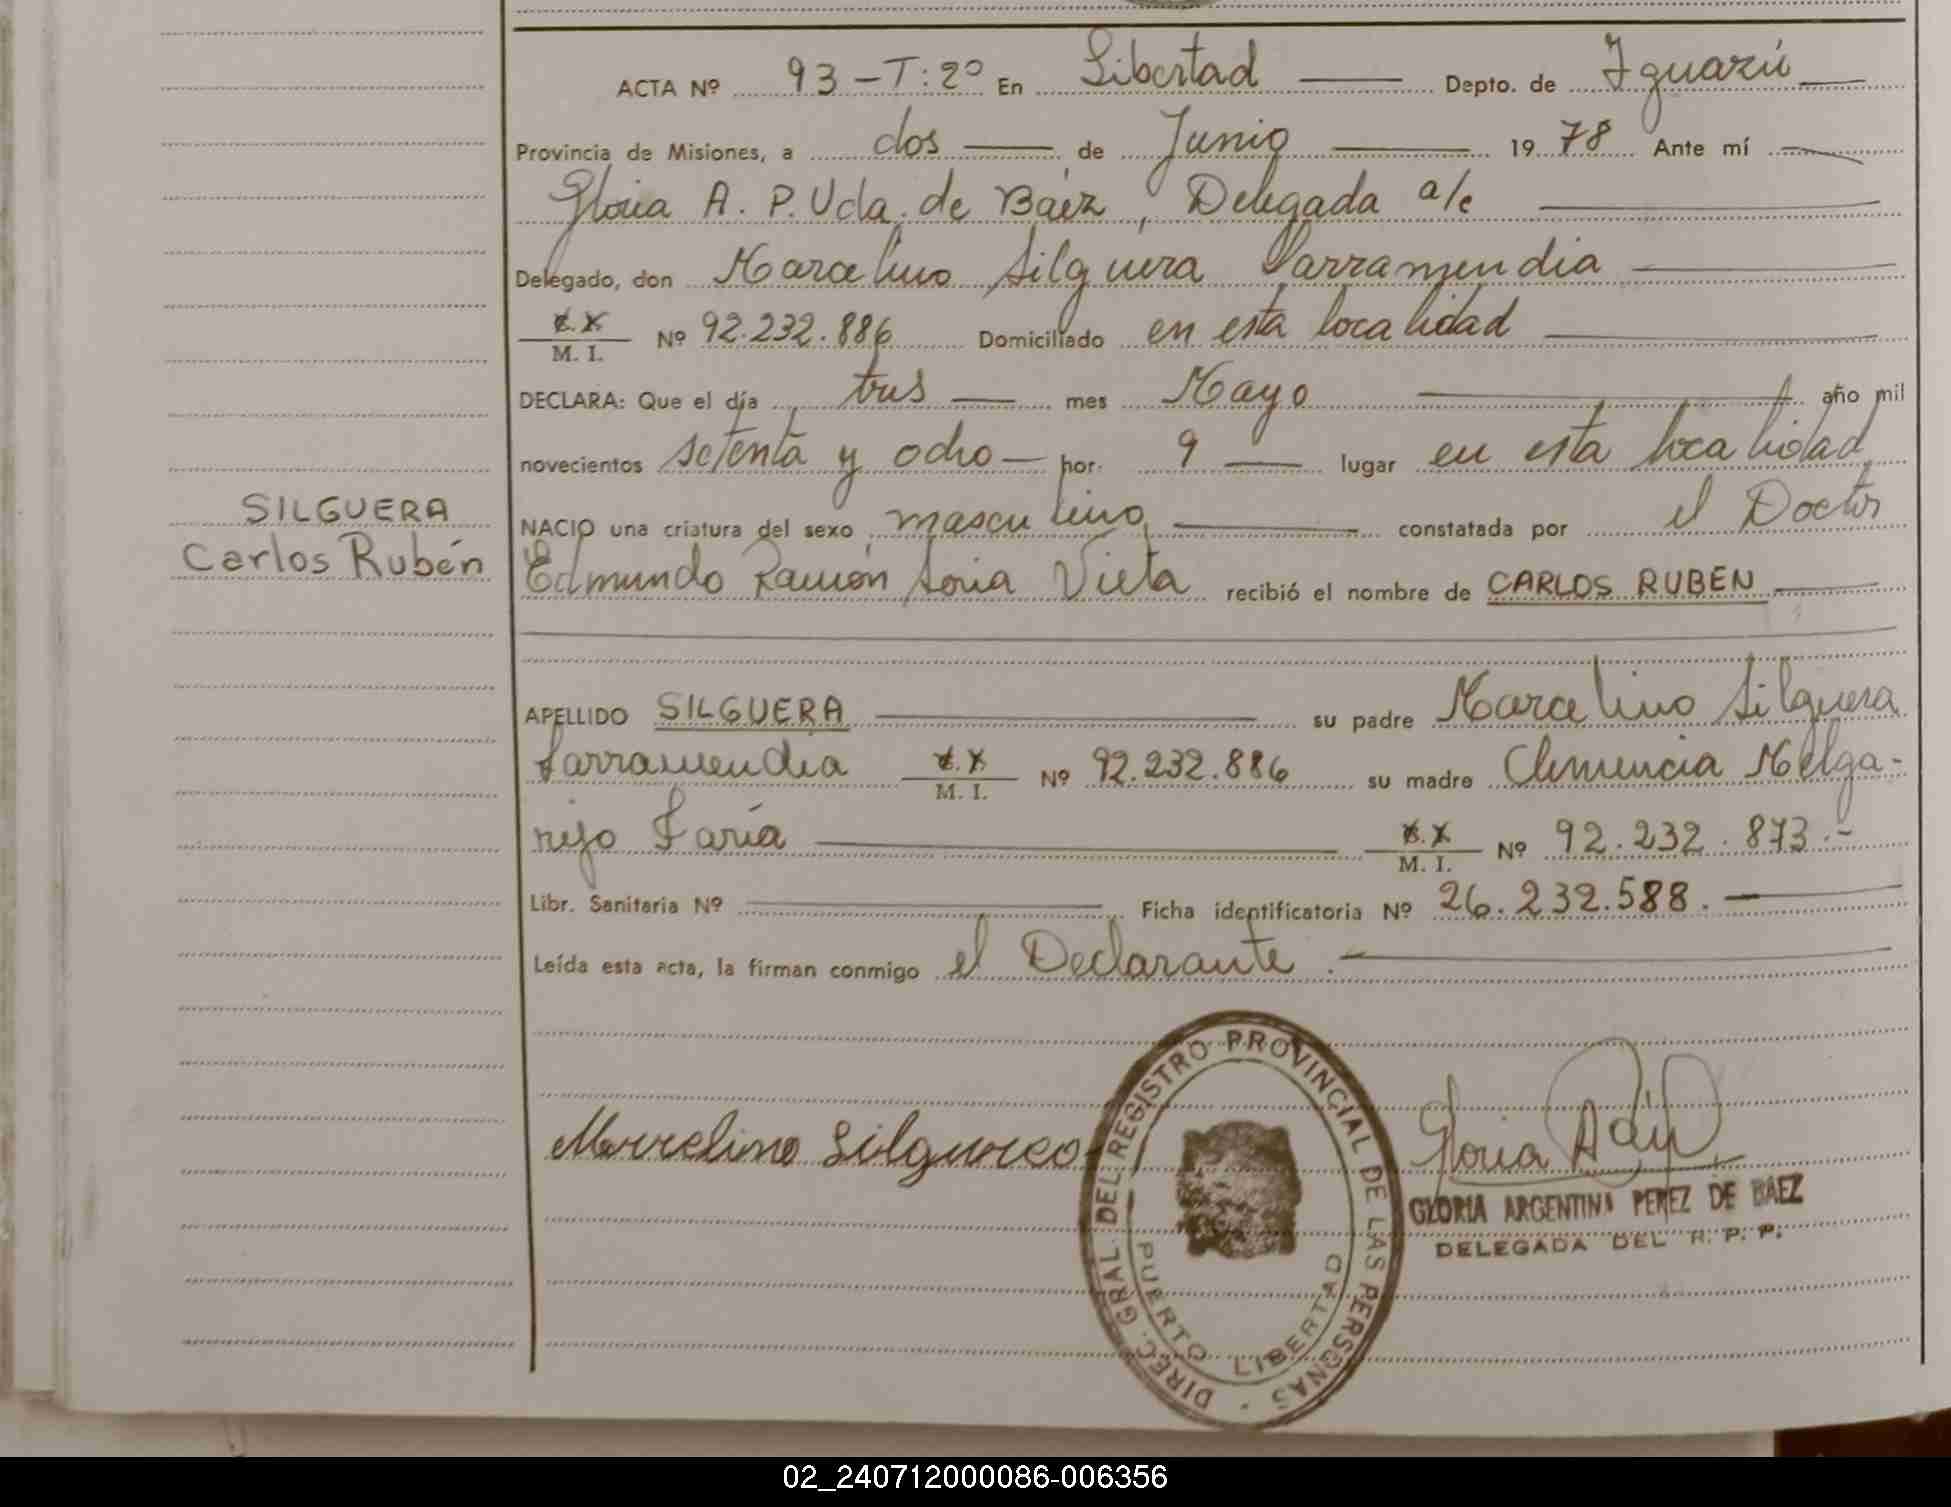 ACTA Nº 93 - T: 2º En Libertad Depto. de Iguazú
Provincia de Misiones, a dos de Junio 1978 Ante mí
Gloria A. P. Vda. de Báez, Delegada a/c
Delegado, don Marcelino Silguera Larramendia
C.I. / M. I. Nº 92.232.886 Domiciliado en esta localidad
DECLARA: Que el día tres mes Mayo año mil
novecientos setenta y ocho hor. 9 lugar en esta localidad
SILGUERA
NACIO una criatura del sexo masculino constatada por el Doctor
Carlos Rubén
Edmundo Ramón Soria Vieta recibió el nombre de CARLOS RUBEN
APELLIDO SILGUERA su padre Marcelino Silguera
Larramendia C.I. / M. I. Nº 92.232.886 su madre Clemencia Melga-
rejo Faría C.I. / M. I. Nº 92.232.873.-
Libr. Sanitaria Nº Ficha identificatoria Nº 26.232.588.
Leída esta acta, la firman conmigo el Declarante.
DIREC. GRAL. DEL REGISTRO PROVINCIAL DE LAS PERSONAS
PUERTO LIBERTAD
Gloria
GLORIA ARGENTINA PEREZ DE BAEZ
DELEGADA DEL R. P. P.
02_240712000086-006356